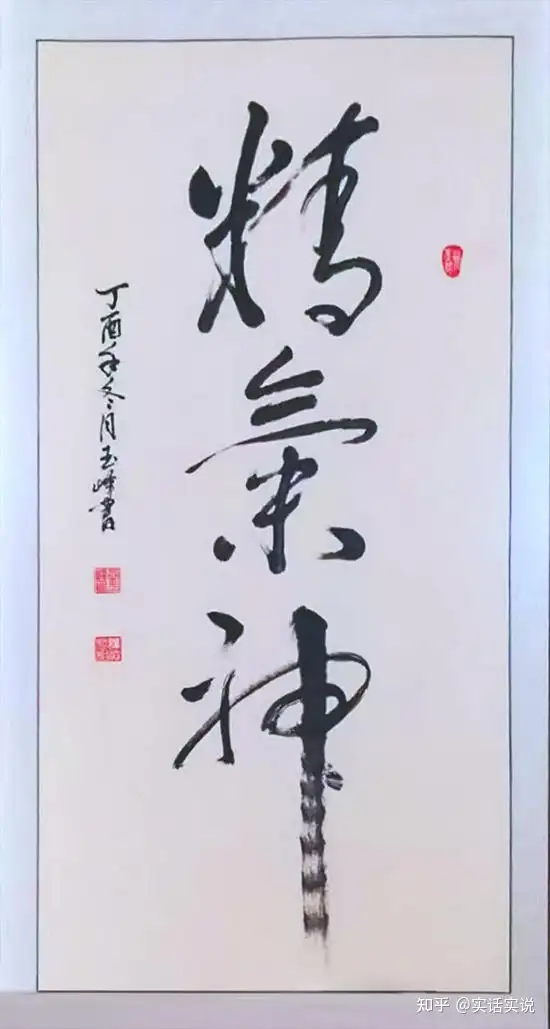 精氣神
丁酉年冬月玉峰書
知乎 @实话实说